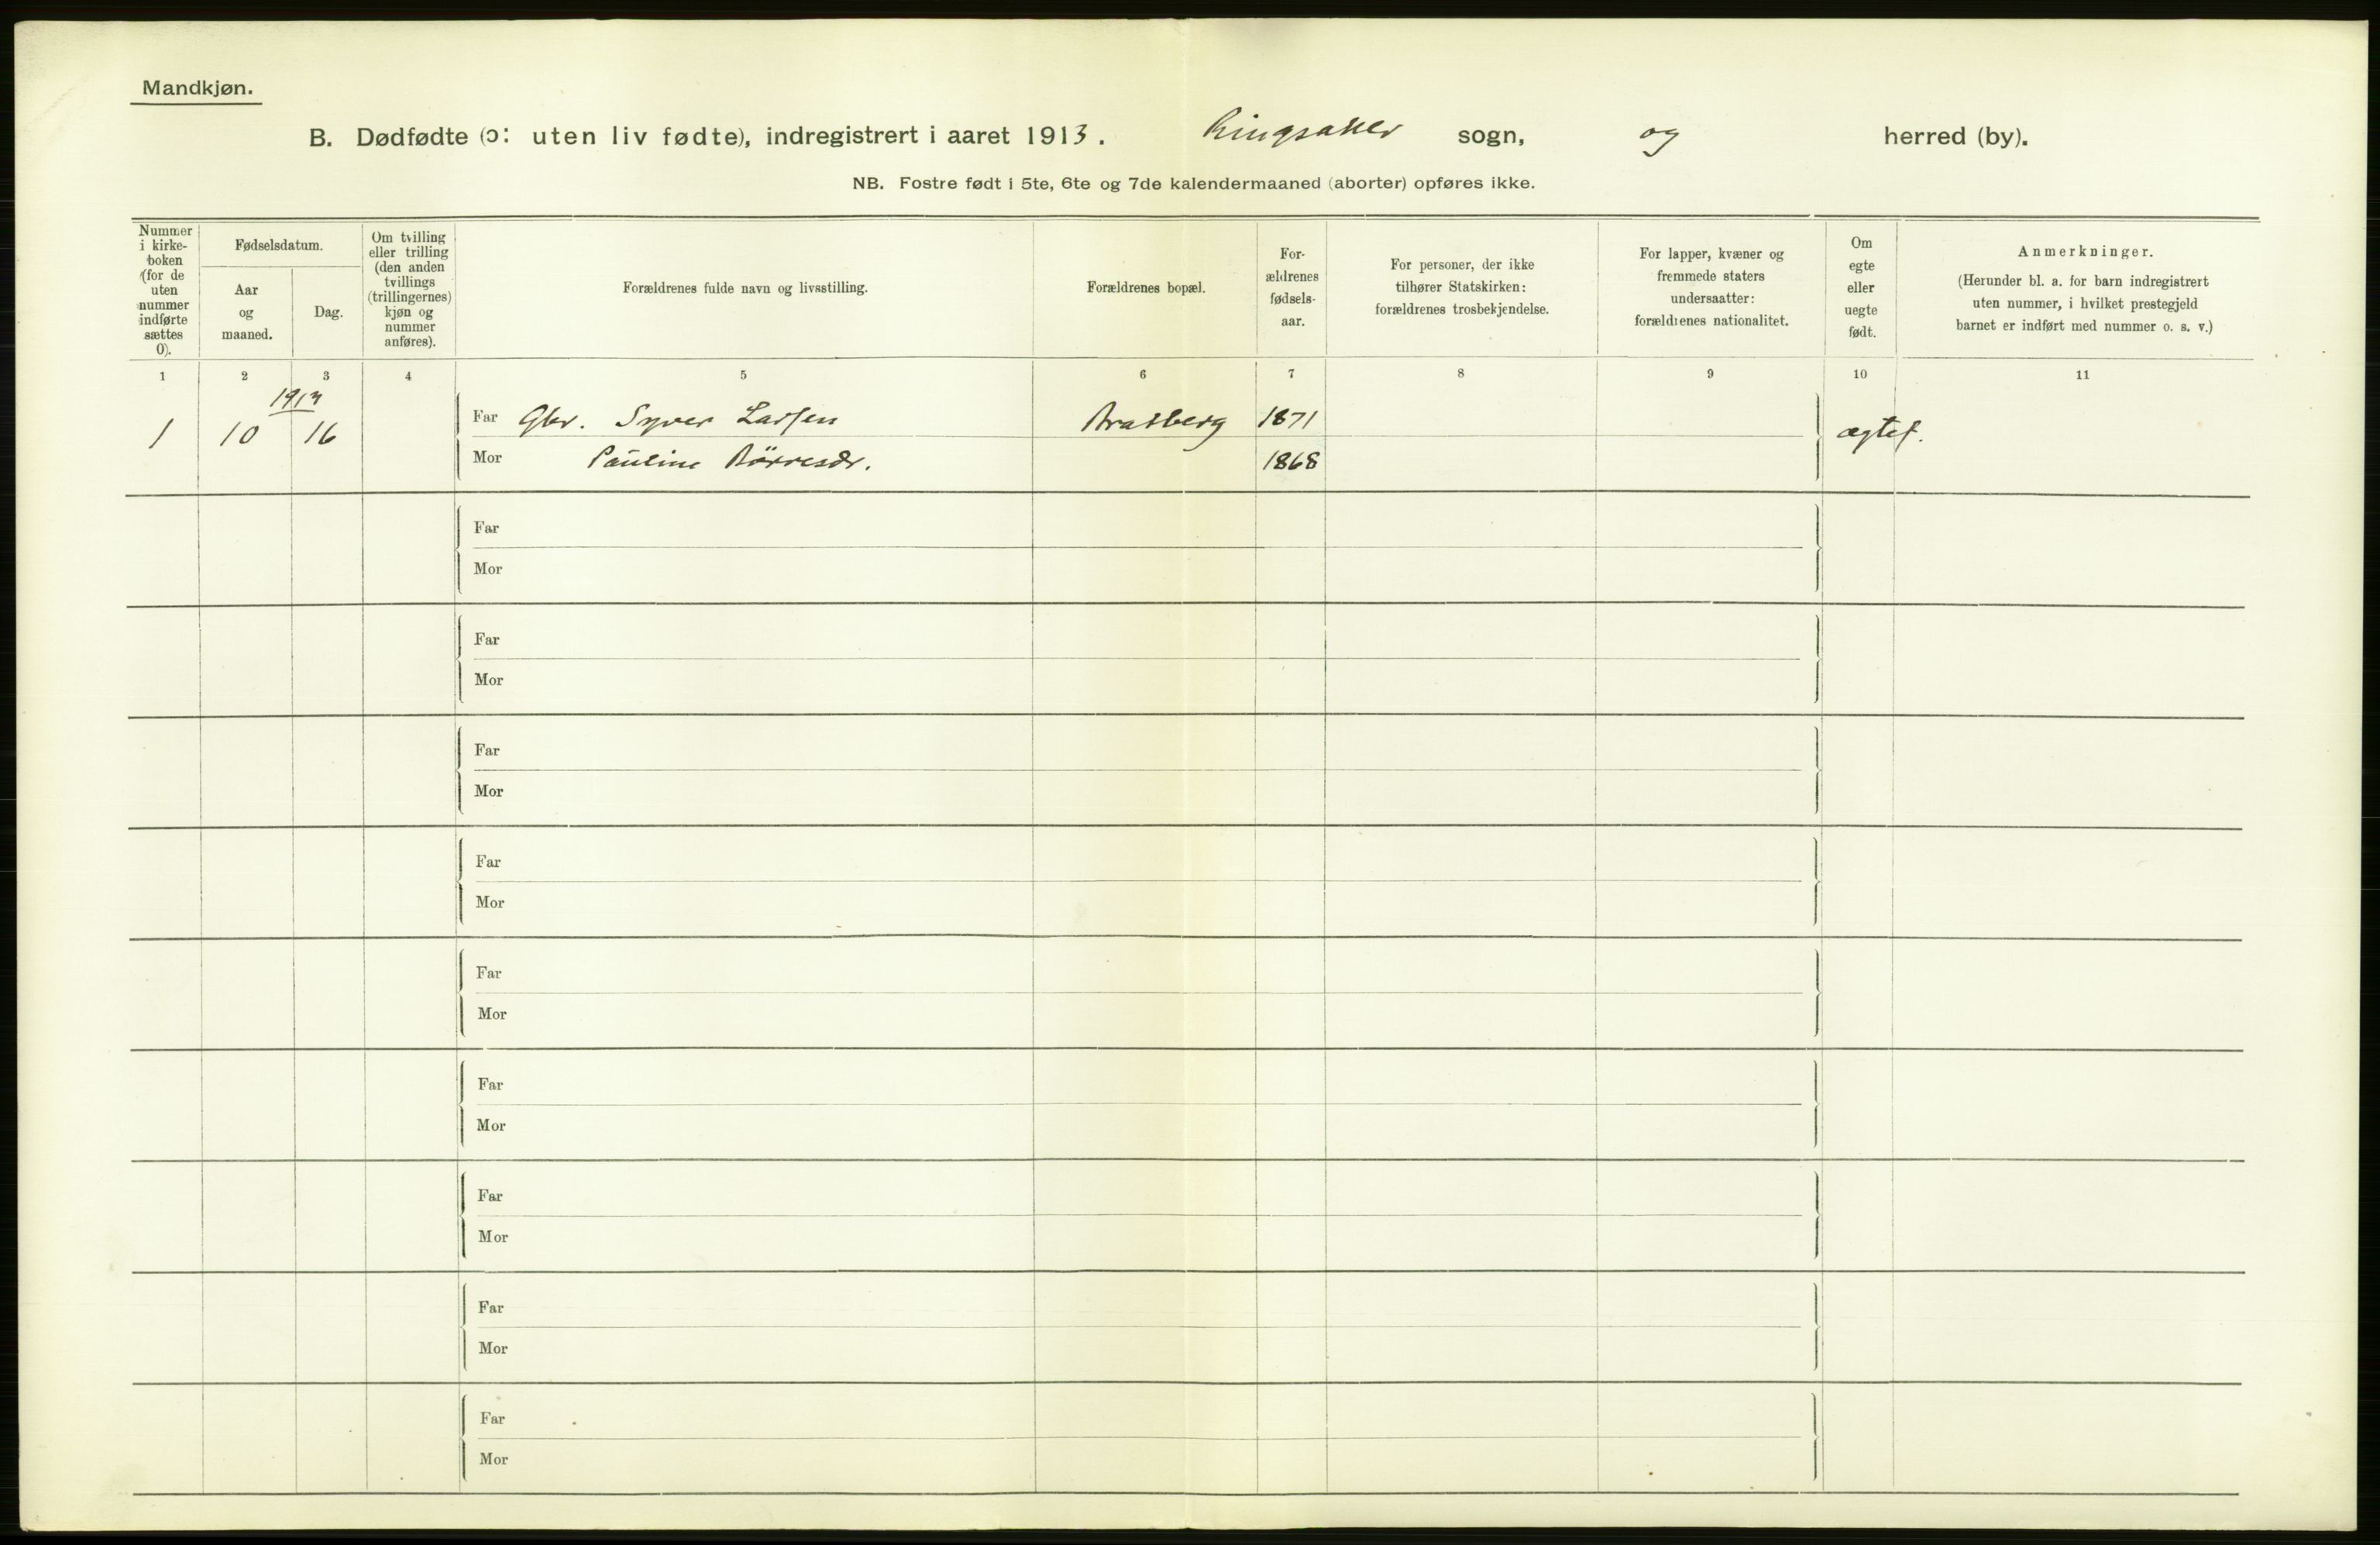 Mandkjøn.
B. Dødfødte (ɔ: uten liv fødte), indregistrert i aaret 1913. Ringsaker sogn, og herred (by).
NB. Fostre født i 5te, 6te og 7de kalendermaaned (aborter) opføres ikke.
Nummer
i kirke-
boken
(for de
uten
nummer
indførte
sættes
0).
Fødselsdatum.
Aar
og
maaned.
Dag.
Om tvilling
eller trilling
(den anden
tvillings
(trillingernes)
kjøn og
nummer
anføres).
Forældrenes fulde navn og livsstilling.
Forældrenes bopæl.
For-
ældrenes
fødsels-
aar.
For personer, der ikke
tilhører Statskirken:
forældrenes trosbekjendelse.
For lapper, kvæner og
fremmede staters
undersaatter:
forældrenes nationalitet.
Om
egte
eller
uegte
født.
Anmerkninger.
(Herunder bl. a. for barn indregistrert
uten nummer, i hvilket prestegjeld
barnet er indført med nummer o. s. v.)
1 2 3 4 5 6 7 8 9 10 11
1 10 16 Far Gbr. Syver Larsen 1871 ægtef.
Mor Pauline Börresdr. 1868
Far
Mor
Far
Mor
Far
Mor
Far
Mor
Far
Mor
Far
Mor
Far
Mor
Far
Mor
Far
Mor